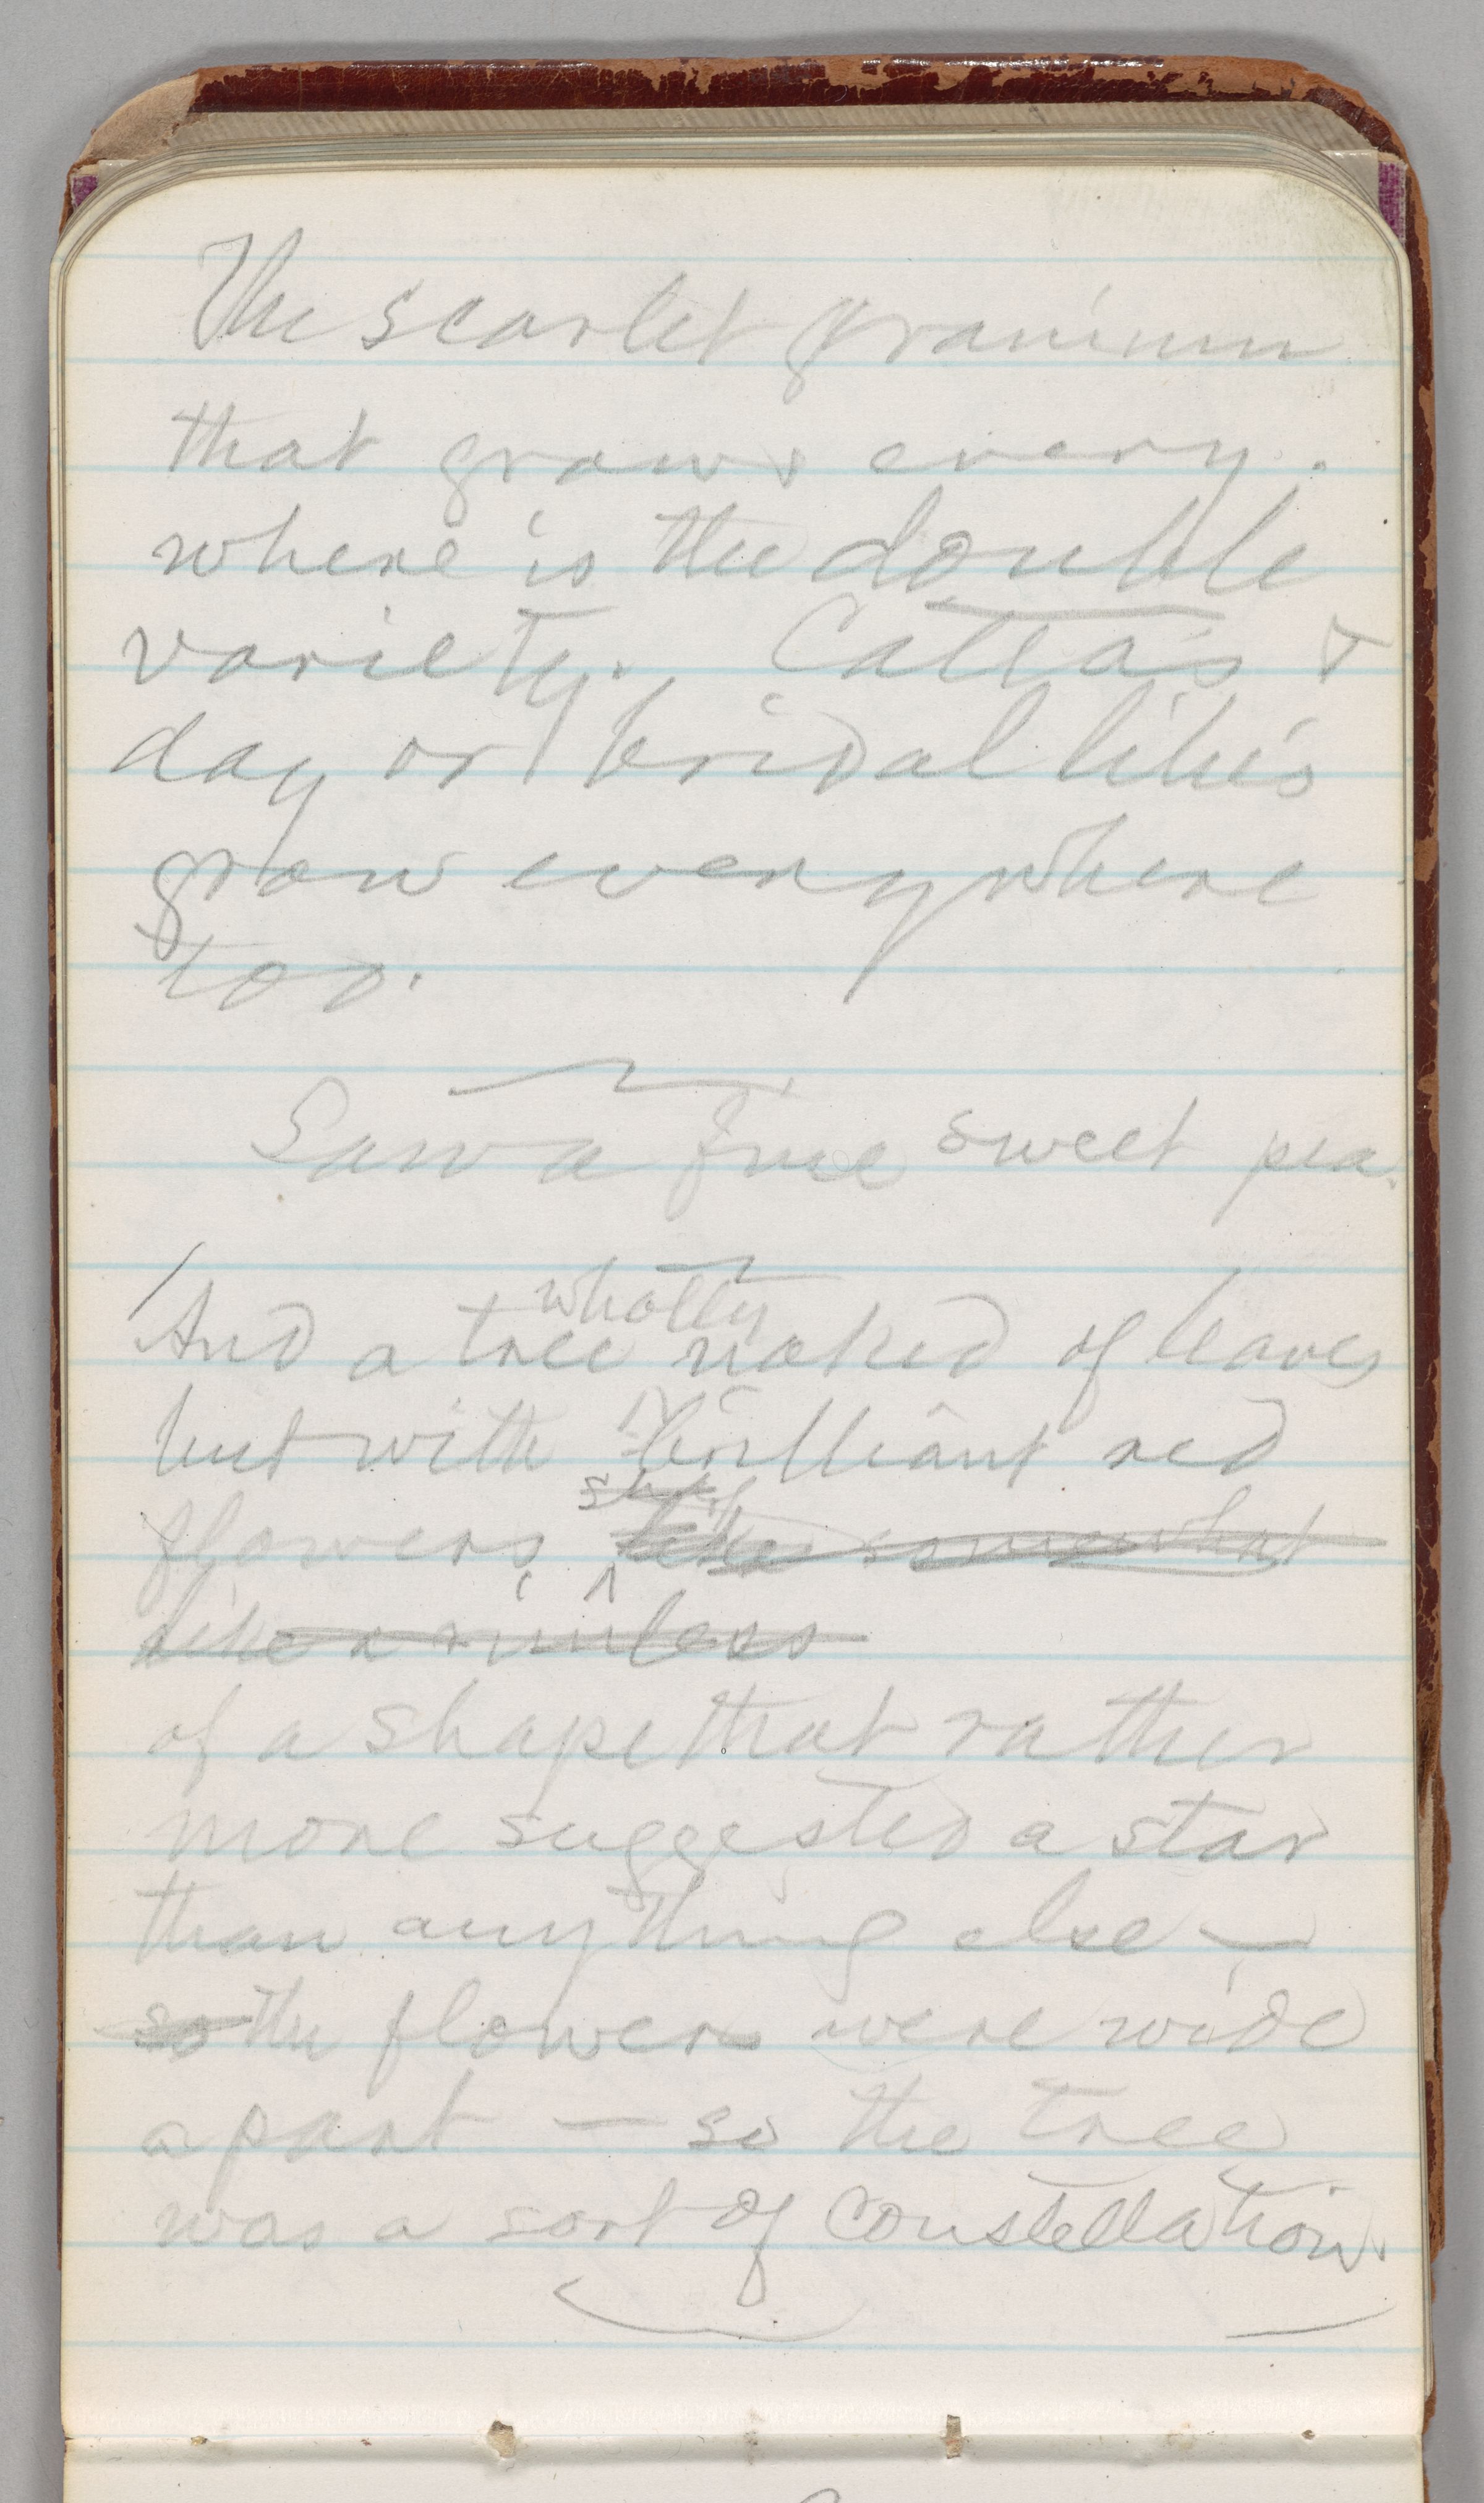 The scarlet geranium
that grows every-
where is the double
variety. Calla's &
day or bridal lilies
grow everywhere
too.
Saw a fine sweet pea.
wholly
And a tree naked of leaves
but with brilliant red
flowers, like somewhat
like a rimless
of a shape that rather
more suggested a star
than anything else —
so the flowers were wide
apart — so the tree
was a sort of constellation.